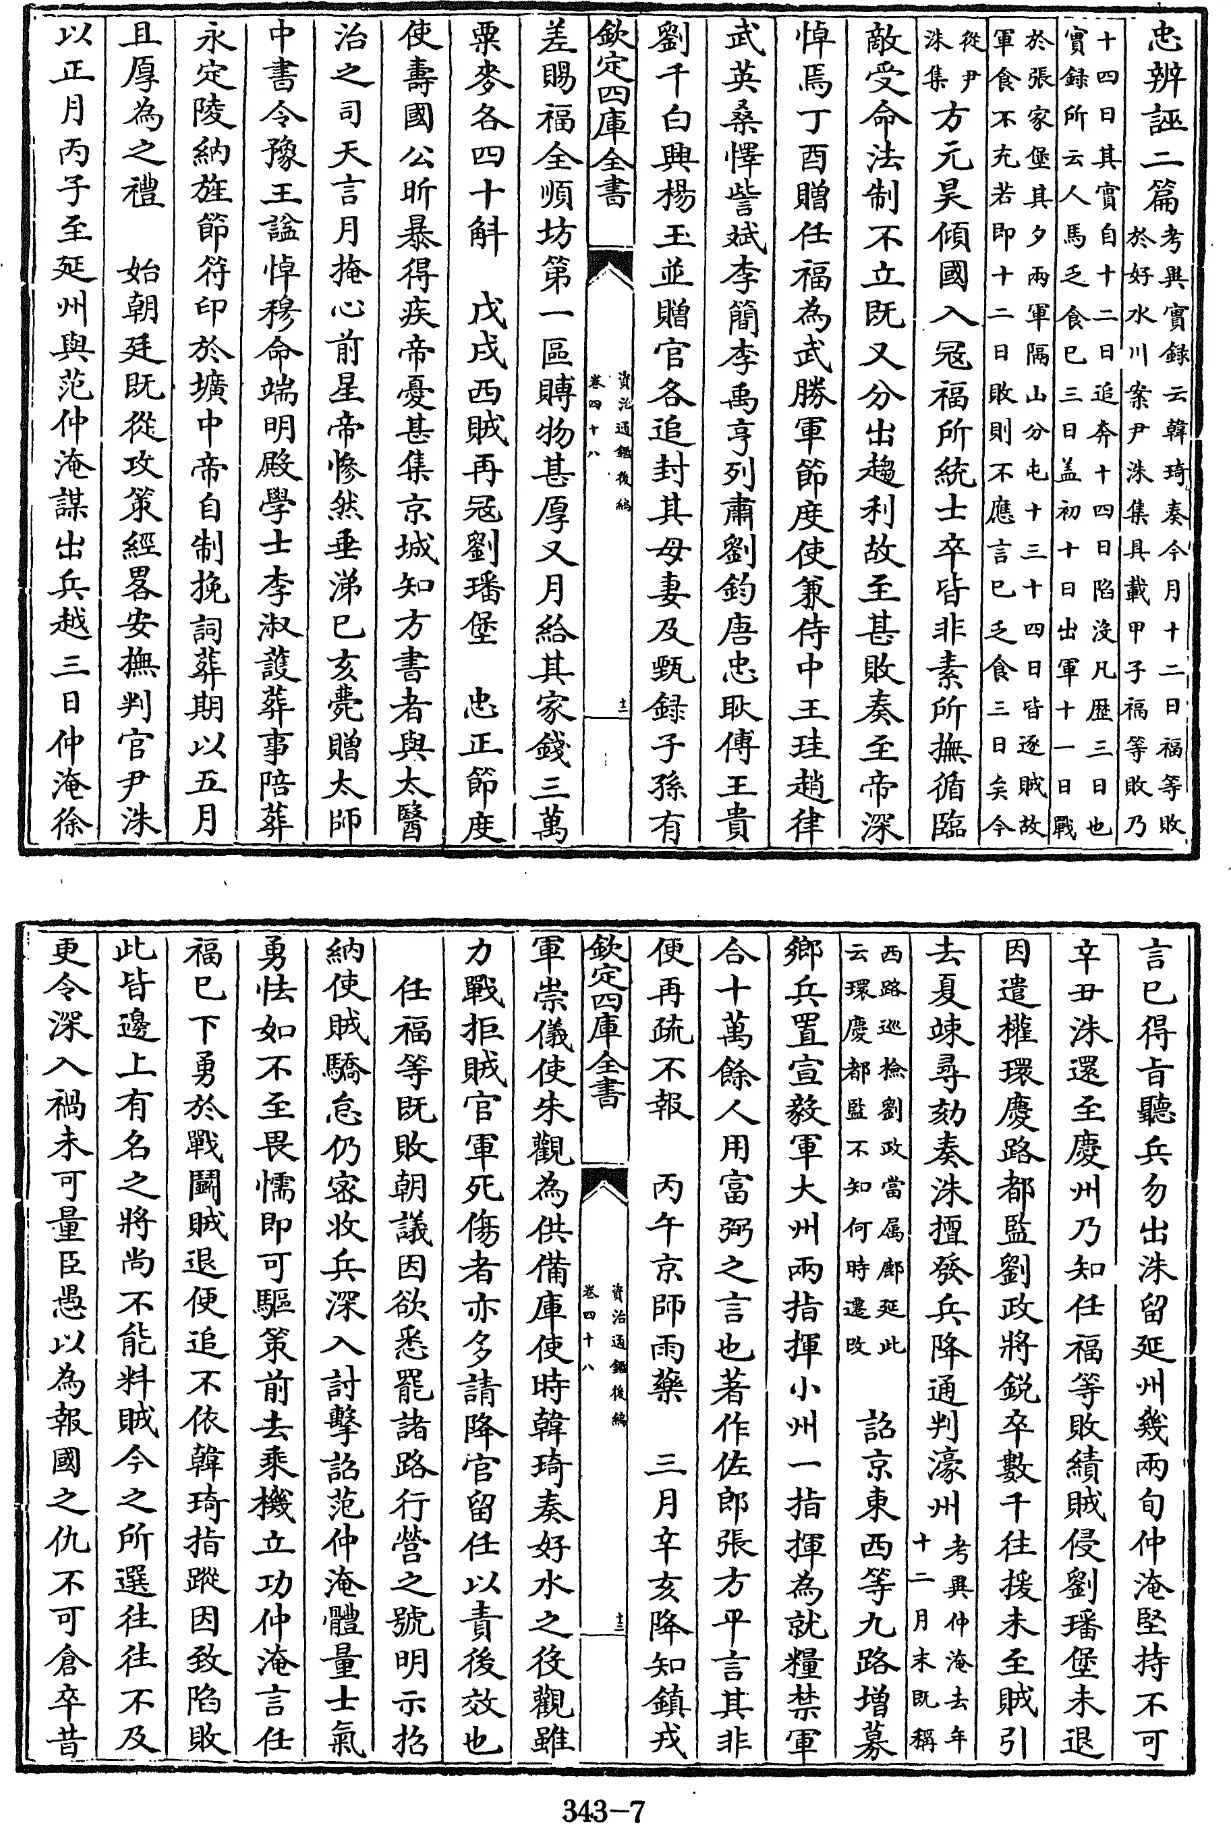 忠辨誣二篇考異實録云韓琦奏今月十二日福等敗
於好水川案尹洙集具載甲子福等敗乃
十四日其實自十二日追奔十四日陷没凡歷三日也
實録所云人馬乏食已三日盖初十日出軍十一日戰
於張家堡其夕兩軍隔山分屯十三十四日皆逐賊故
軍食不充若即十二日敗則不應言已乏食三日矣今
從尹洙集方元昊傾國入冦福所統士卒皆非素所撫循臨
敵受命法制不立既又分出趨利故至甚敗奏至帝深
悼焉丁酉贈任福為武勝軍節度使兼侍中王珪趙律
武英桑懌訾斌李簡李禹亨列肅劉鈞唐忠耿傅王貴
劉千白興楊玉並贈官各追封其母妻及甄録子孫有
欽定四庫全書
資治通鑑後編
卷四十八
十二
差賜福全順坊第一區賻物甚厚又月給其家錢三萬
粟麥各四十斛 戊戌西賊再冦劉璠堡 忠正節度
使壽國公昕暴得疾帝憂甚集京城知方書者與太醫
治之司天言月掩心前星帝慘然垂涕巳亥薨贈太師
中書令豫王諡悼穆命端明殿學士李淑護葬事陪葬
永定陵納旌節符印於壙中帝自制挽詞葬期以五月
且厚為之禮 始朝廷既從攻策經畧安撫判官尹洙
以正月丙子至延州與范仲淹謀出兵越三日仲淹徐
言已得旨聽兵勿出洙留延州幾兩旬仲淹堅持不可
辛丑洙還至慶州乃知任福等敗績賊侵劉璠堡未退
因遣權環慶路都監劉政將鋭卒數千往援未至賊引
去夏竦尋劾奏洙擅發兵降通判濠州考異仲淹去年
十二月末既稱
西路巡檢劉政當属鄜延此
云環慶都監不知何時遷改 詔京東西等九路增募
鄉兵置宣毅軍大州兩指揮小州一指揮為就糧禁軍
合十萬餘人用富弼之言也著作佐郎張方平言其非
便再疏不報 丙午京師雨藥 三月辛亥降知鎮戎
欽定四庫全書
資治通鑑後編
卷四十八
十三
軍崇儀使朱觀為供備庫使時韓琦奏好水之役觀雖
力戰拒賊官軍死傷者亦多請降官留任以責後效也
任福等既敗朝議因欲悉罷諸路行營之號明示招
納使賊驕怠仍密收兵深入討擊詔范仲淹體量士氣
勇怯如不至畏懦即可驅策前去乘機立功仲淹言任
福已下勇於戰鬪賊退便追不依韓琦指蹤因致陷敗
此皆邊上有名之將尚不能料賊今之所選往往不及
更令深入禍未可量臣愚以為報國之仇不可倉卒昔
343-7